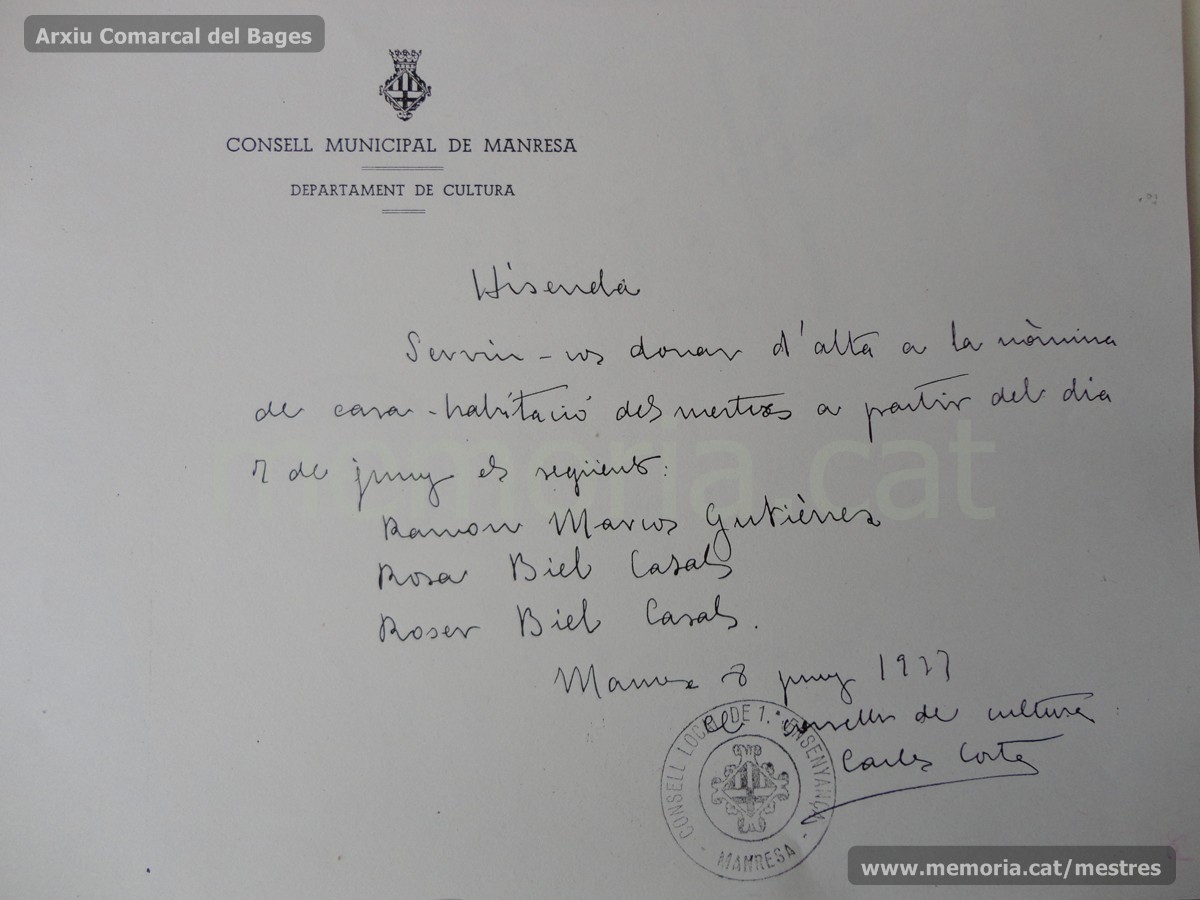 Arxiu Comarcal del Bages
CONSELL MUNICIPAL DE MANRESA
DEPARTAMENT DE CULTURA
Hisenda
Serviu-vos donar d'alta a la nòmina
de casa-habitació dels mestres a partir del dia
de juny els següents:
Ramon Marcos Gutièrrez
Rosa Biel Casals
Roser Biel Casals.
Manresa 8 juny 1937
el conseller de cultura
Carles Corts
CONSELL LOCAL DE 1. ENSENYANÇA
- MANRESA -
memoria.cat
www.memoria.cat/mestres